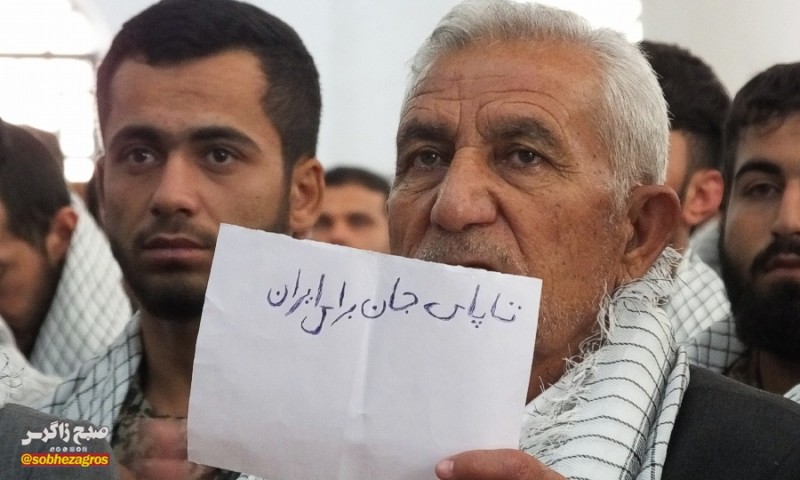 تا پای جان برای ایران
صبح زاگرس
@sobhezagros